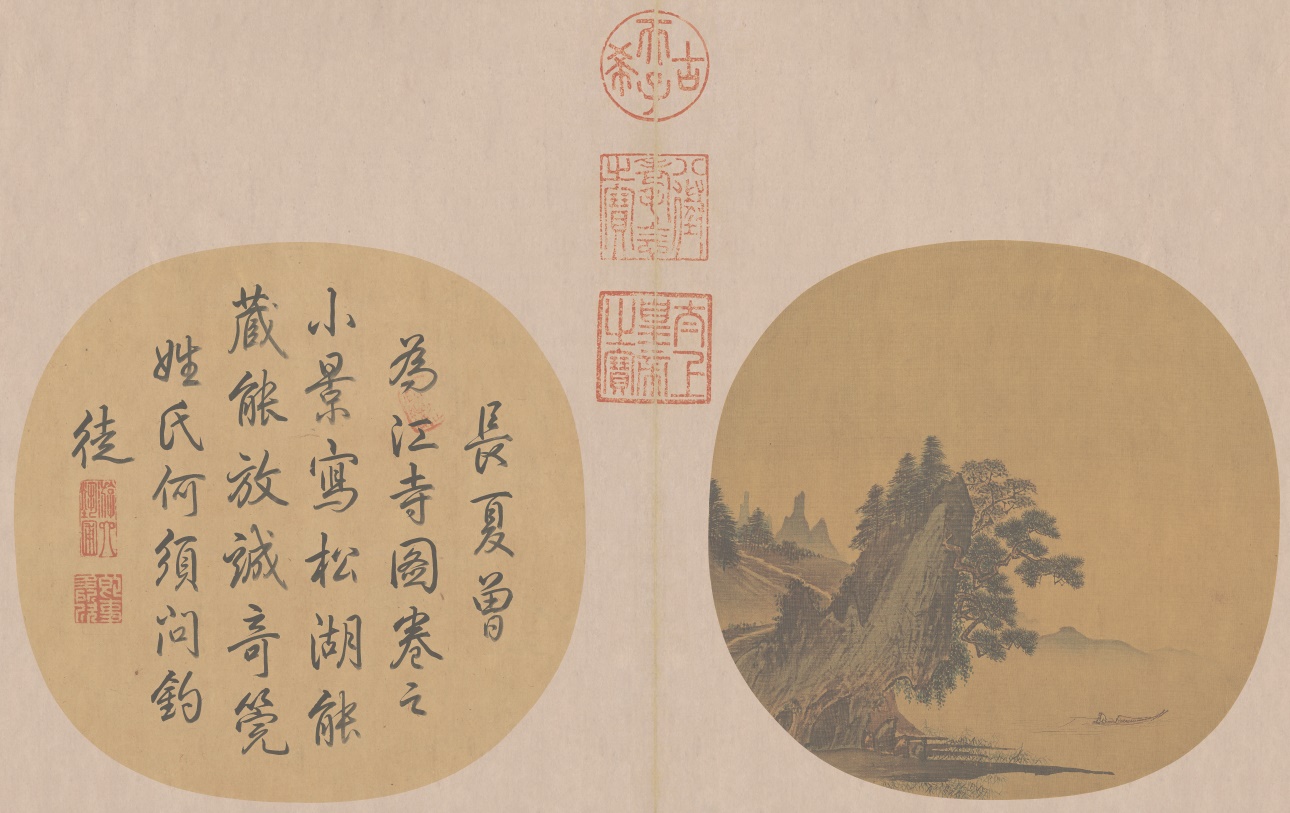 古希天子
八徵耄念之寶
太上皇帝之寶
長夏曾
為江寺圖卷之
小景寫松湖能
藏能放誠奇筦
姓氏何須問釣
徒